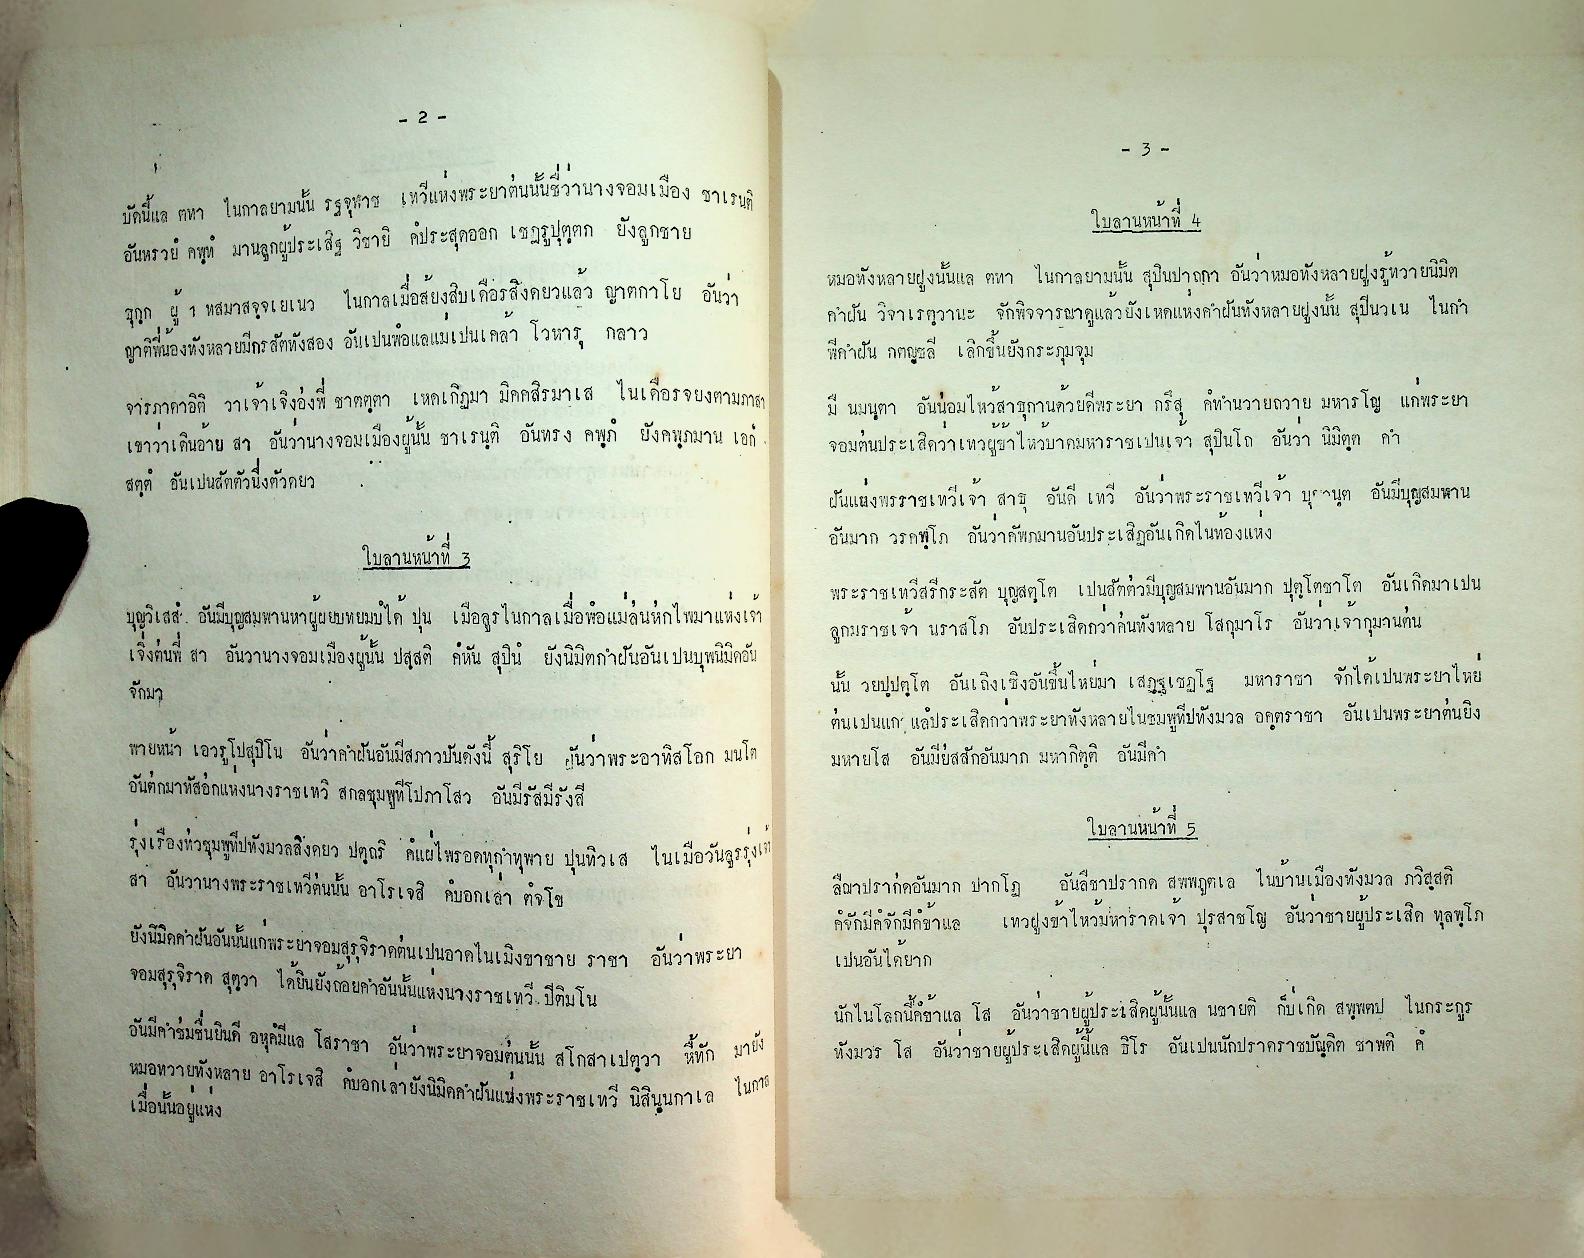 - 2 -
บัดนี้แล ตทา ไนกาลยามนั้น รฐจุฬาช เทวีแห่งพระยาต่นนั้นชื่ว่านางจอมเมือง ชาเรนฺติ
อันหรวยํ คพฺทํ มานลูกผู้ประเสิฐ วิชายิ คํประสุตออก เชฎรูปุตฺตก ยังลูกชาย
ฃุกฺก ผู้ 1 ทสมาสจฺจเยเนว ไนกาลเมื่อส้ยงสิบเดือรสิ่งดยวแล้ว ญาตกาโย อันว่า
ญาติพี่น้องทังหลายมีกรสัตทังสอง อันเปนพํอแลแม่เปนเคล้า โวหารฺุ กลาว
จารภาคาอิติ วาเจ้าเจิงอ่งพี่ ชาตตฺตา เหตเกิฏมา มิคคสิรมาเส ไนเดือรจยงตามภาสา
เขาว่าเดินอ้าย สา อันว่านางจอมเมืองผู้นั้น ชาเรนฺติ อันทรง คพฺภํ ยังคพฺภมาน เอกํ
สตฺตํ อันเปนสัตตัวนึ่งตัวดยว
ใบลานหน้าที่ 3
บุญวิเสสํ อันมีบุญสมพานหาผู้ยยบทยมบํได้ ปุน เมือลูรไนกาลเมื่อพํอแม่ล่นห่กไพมาแห่งเจ้า
เจิ่งต่นพี่ สา อันวานางจอมเมืองผู้นั้น ปสฺสติ คํหัน สุปินํ ยังนิมิตกำฝันอันเปนบุพนิมิตอัน
จักมา
พายหน้า เอวรูโปสุปิโน อันว่าคำฝันอันมีสภาวปันดังนี้ สุริโย อันว่าพระอาทิสโอก มนโต
อันต่กมาทัสอ่กแห่งนางราชเทวิ สกลชุมพูทีโปภาโสว อันมีรัสมีรังสี
รุ่งเรืองท่วชุมพูทีปทังมวลสิ่งดยว ปตฺถริ คํแผ่ไพรอดทุกําทุพาย ปุนทิวเส ไนเมือวันลูรรุ่งเจ้า
สา อันวานางพระราชเทวีต่นนั้น อาโรเจสิ คํบอกเล่า ตํจโข
ยังนิมิดคำฝันอันนั้นแก่พระยาจอมสุรุจิราดต่นเปนอาดไนเมิงชาชาย ราชา อันว่าพระยา
จอมสุรุจิราด สุตฺวา ได้ยินยังถ้อยคำอันนั้นแห่งนางราชเทวี ปีติมโน
อันมีคำช่มชื่นยินดี อหุคํมีแล โสราชา อันว่าพระยาจอมต่นนั้น สโกสาเปตฺวา หื้ทัก มายัง
หมอทวายทังหลาย อาโรเจสิ คํบอกเล่ายังนิมิดคำฝันแห่งพระราชเทวี นิสินฺนกาเล ไนกาล
เมื่อนั้นอยู่แห่ง
- 3 -
ใบลานหน้าที่ 4
หมอทังหลายฝูงนั้นแล ตทา ไนกาลยามนั้น สุปินปาฤกา อันว่าหมอทังหลายฝูงรู้ทวายนิมิต
คำฝัน วิจาเรตฺวานะ จักพิจจารณาดูแล้วยังเหดแห่งคำฝันทังหลายฝูงนั้น สุปินวเน ไนกำ
พีคำฝัน กตญฺชลี เลิกขึ้นยังกระภุมจุม
มื นมนฺตา อันน่อมไหว้สาธุกานด้วยดีพระยา กรึสุ คํทำนวายถวาย มหารโญ แก่พระยา
จอมต่นประเสิดว่าเทวผู้ข้าไหว้บาดมหาราชเปนเจ้า สุปินโถ อันว่า นิมิตฺต คำ
ฝันแห่งพรราชเทวีเจ้า สาธุ อันดี เทวี อันว่าพระราชเทวีเจ้า อันมีบุญสมหาน
อันมาก วรคพฺโภ อันว่าคัพภมานอันประเสิฏอันเกิดไนท้องแห่ง
พระราชเทวีสรีกระสัต บุญสตฺโต เปนสัตต่วมีบุญสมพานอันมาก ปุตฺโตชาโต อันเกิดมาเปน
ลูกมราชเจ้า นราสโภ อันประเสิดกว่าค่นทังหลาย โสกุมาโร อันว่าเจ้ากุมานต่น
นั้น วยปฺปตฺโต อันเถิงเชิงอันขึ้นไหย่มา เสฏฺฐเชฏโฐ มหาราชา จักได้เปนพระยาไหย่
ต่นเปนแก แลํประเสิดกว่าพระยาทังหลายไนชมพูทีปทังมวล อคฺตราชา อันเปนพระยาต่นยิง
มหายโส อันมีย่สสักอันมาก มหากิตฺติ อันมีคำ
ใบลานหน้าที่ 5
ลืฌาปราก่ดอันมาก ปากโฏ อันลืชาปรากด สพพภูตเล ไนบ้านเมืองทังมวล ภวิสฺสติ
คํจักมีคํจักมีคํข้าแล เทวฝูงข้าไหว้มหาราดเจ้า ปุรสาชโญ อันว่าชายผู้ประเสิด ทุลพฺโภ
เปนอันได้ยาก
นักไนโลกนี้คํข้าแล โส อันว่าชายผู้ประเสิดผู้นั้นแล นชายติ ก็บํเกิด สพฺพตป ไนกระกูร
ทังมวร โส อันว่าชายผู้ประเสิดผู้นี้แล ธิโร อันเปนนักปราดราชบัณฺดิต ชาพติ คํ